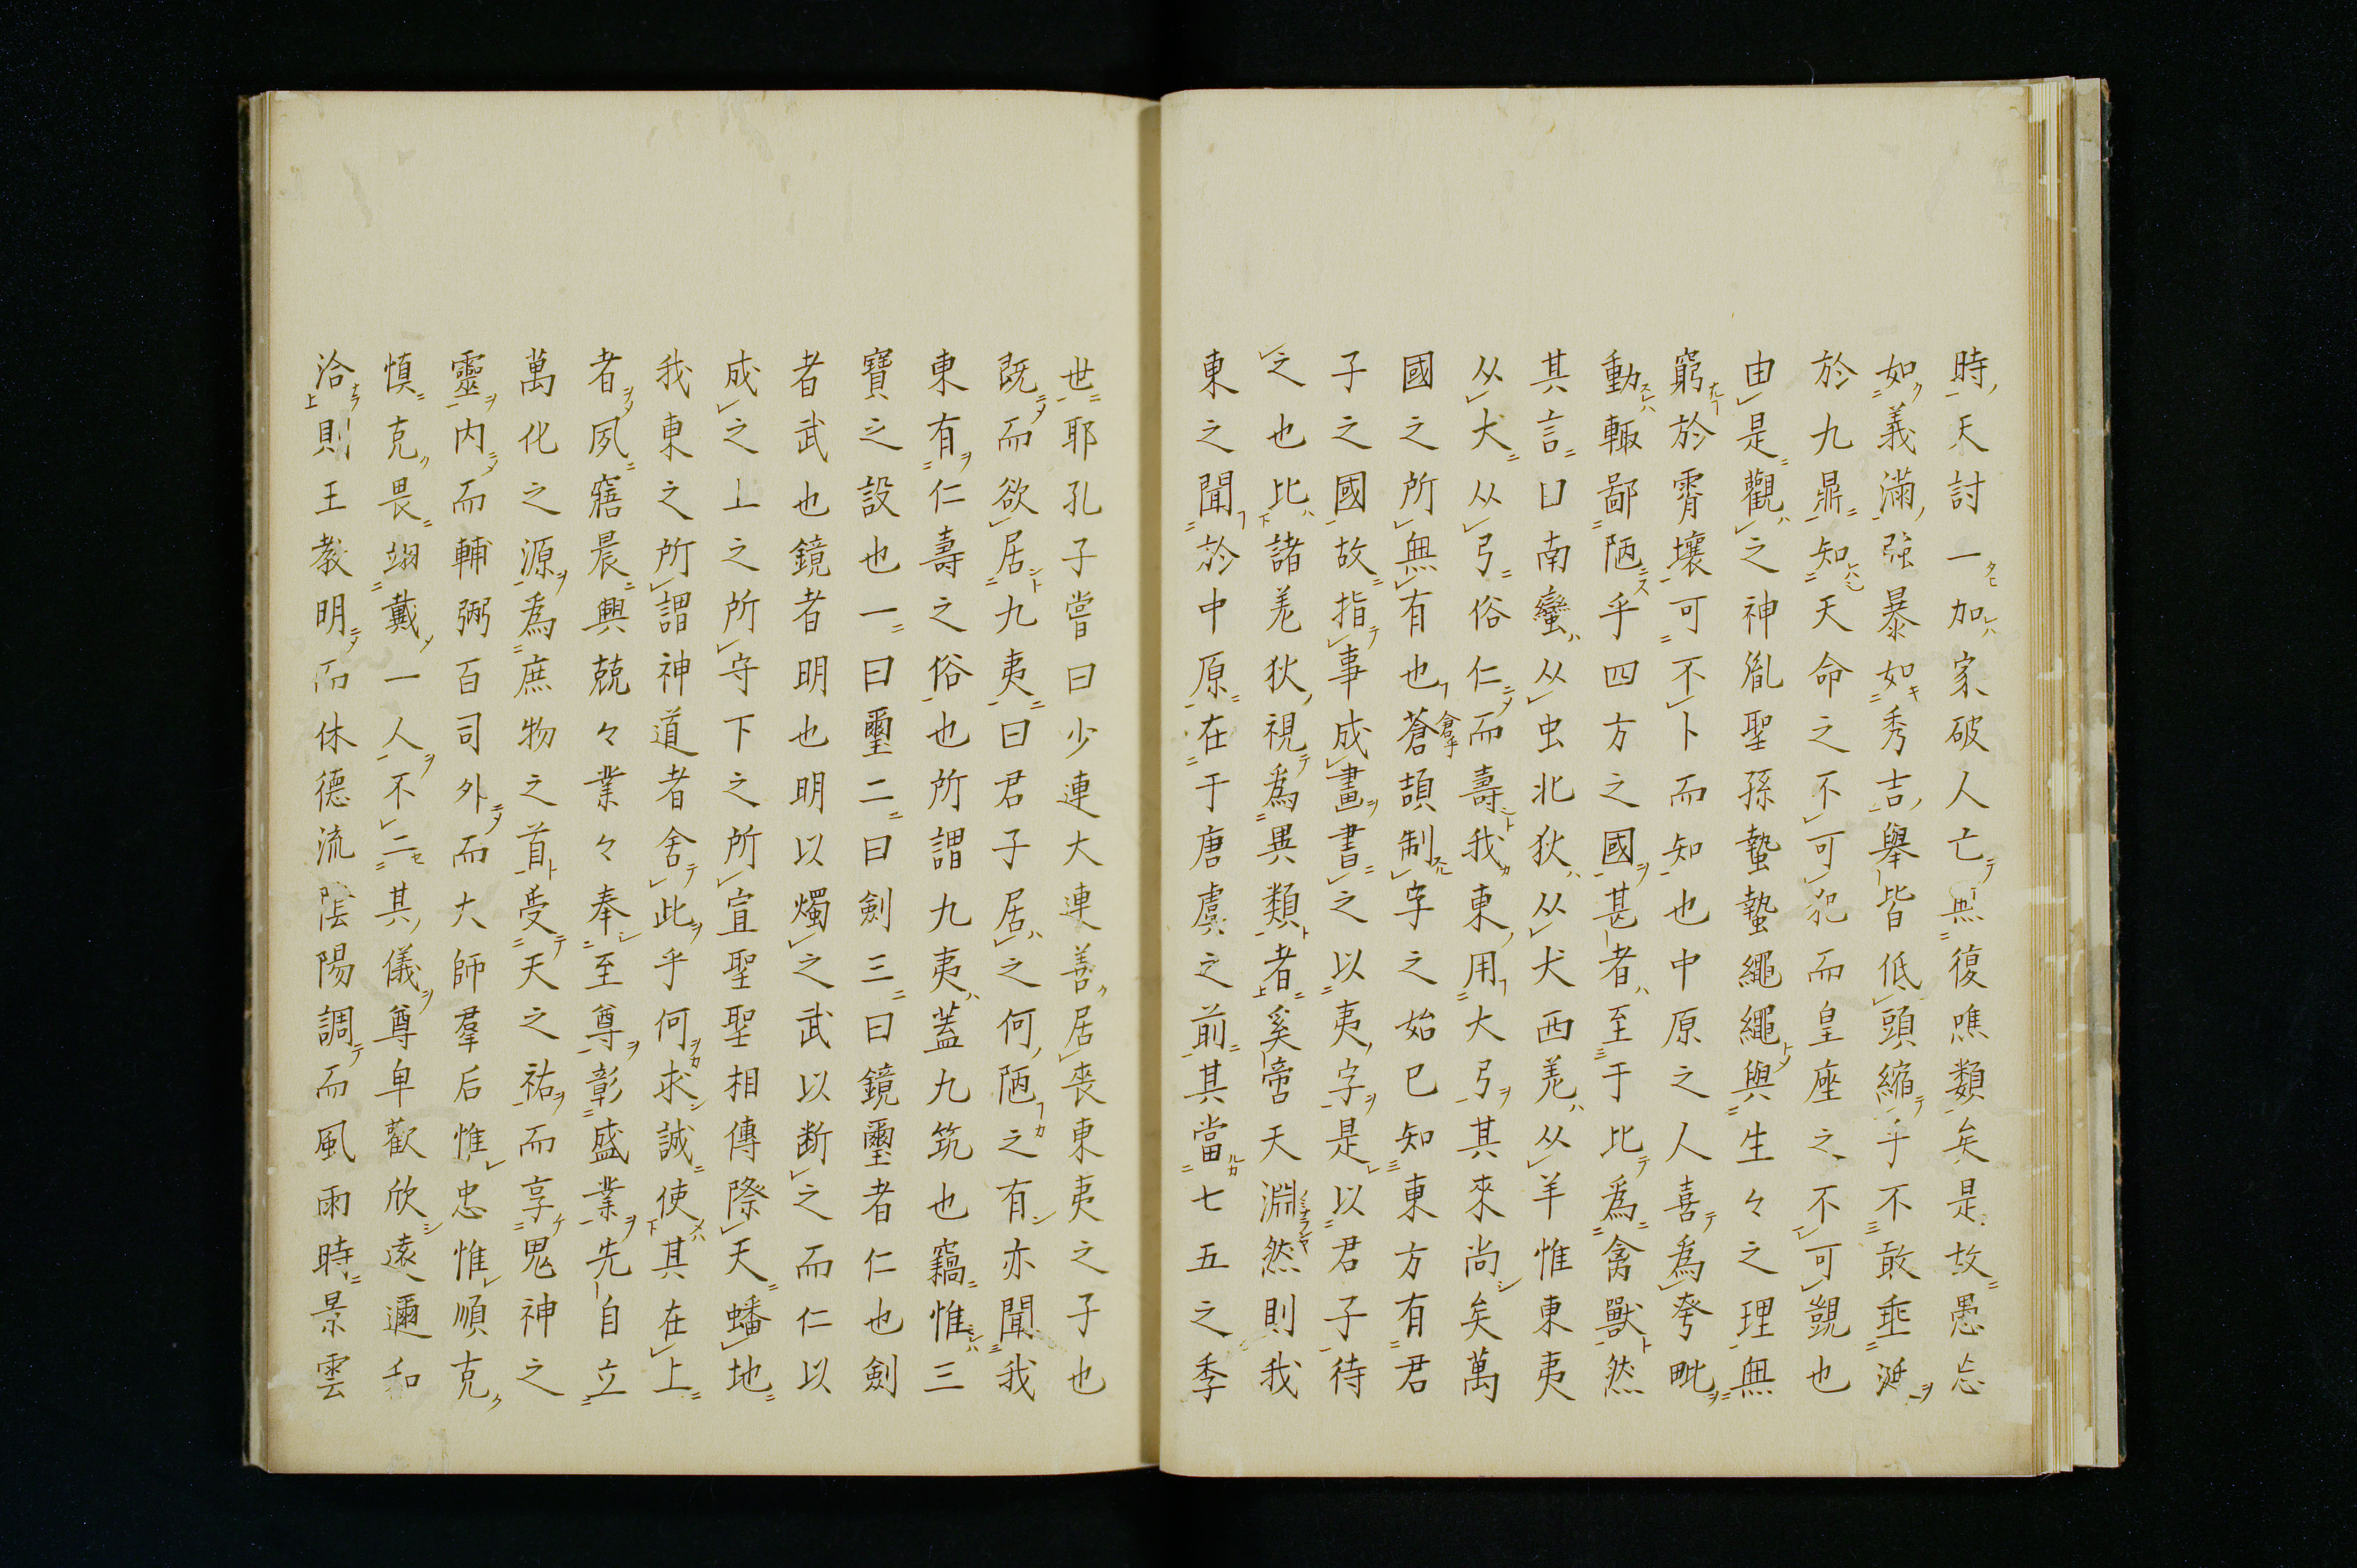 時天討一加家破人亡無復噍類矣是故愚忘
如義滿強暴如秀吉擧皆低頭縮手不敢垂涎
於九鼎知天命之不可犯而皇座之不可覬也
由是觀之神胤聖孫蟄蟄繩繩與生々之理無
窮於霄壤可不卜而知也中原之人喜為夸毗
動輙鄙陋乎四方之國甚者至于比為禽獸然
其言曰南蠻从虫北狄从犬西羌从羊惟東夷
从大从弓俗仁而壽我東用大弓其來尚矣萬
國之所無有也蒼頡制字之始已知東方有君
子之國故指事成畫書之以夷字是以君子待
之也比諸羌狄視為異類者奚啻天淵然則我
東之聞於中原在于唐虞之前其當七五之季
世耶孔子嘗曰少連大連善居喪東夷之子也
既而欲居九夷曰君子居之何陋之有亦聞我
東有仁壽之俗也所謂九夷蓋九筑也竊惟三
寶之設也一曰璽二曰劍三曰鏡璽者仁也劍
者武也鏡者明也明以燭之武以断之而仁以
成之上之所守下之所宣聖聖相傳際天蟠地
我東之所謂神道者舍此乎何求誠使其在上
者夙寤晨興兢々業々奉至尊彰盛業先自立
萬化之源為庶物之首受天之祐而享鬼神之
靈内而輔弼百司外而大師羣后惟忠惟順克
慎克畏翊戴一人不二其儀尊卑歡欣遠邇和
洽則王教明而休德流陰陽調而風雨時景雲